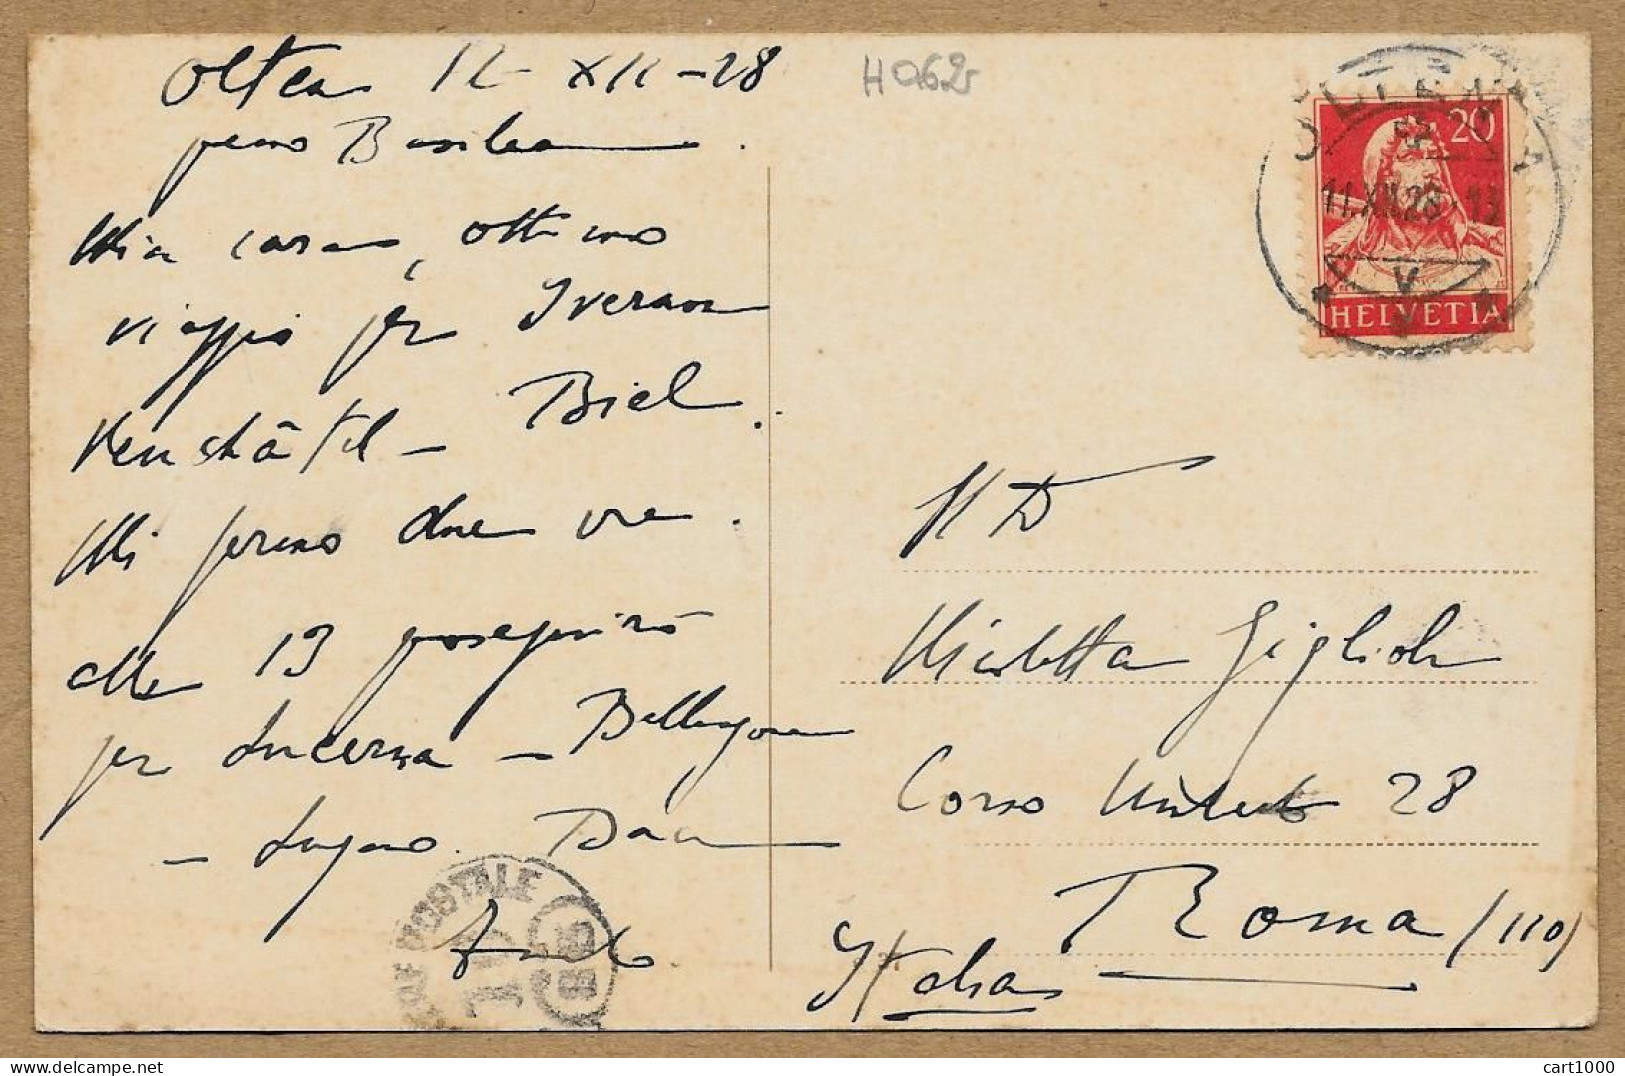 Olten 12 XII-28
presso Basilea.
Mia cara, ottimo
viaggio per Yverdon
Neuchâtel - Biel.
Mi fermo due ore.
alle 13 proseguirò
per Lucerna - Bellinzona
- Lugano. Baci
H062
20
HELVETIA
11.XII.28
V
N D
Nicoletta Giglioli
Corso Umberto 28
Roma (110)
Italia
POSTALE
cart1000